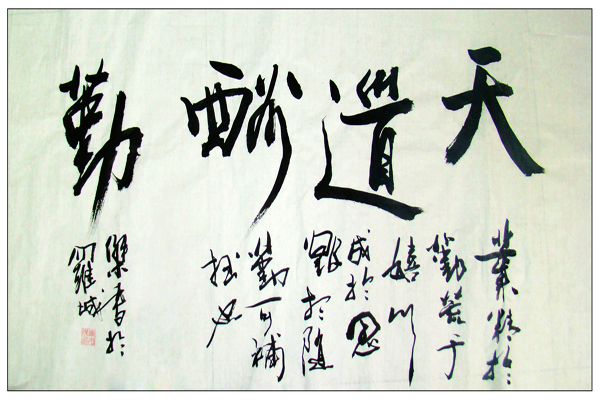 天道酬勤
業精於
勤荒于
嬉行
成於思
毀於隨
勤可補
拙也
書於
羅城